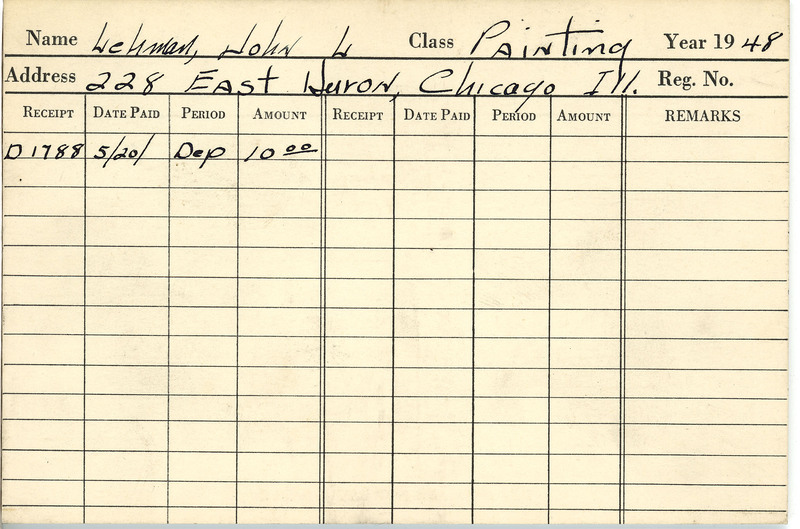 Name Lehman, John L Class Painting Year 1948
Address 228 East Huron, Chicago Ill. Reg. No.
RECEIPT DATE PAID PERIOD AMOUNT RECEIPT DATE PAID PERIOD AMOUNT REMARKS
D1788 5/20/ Dep 10 00